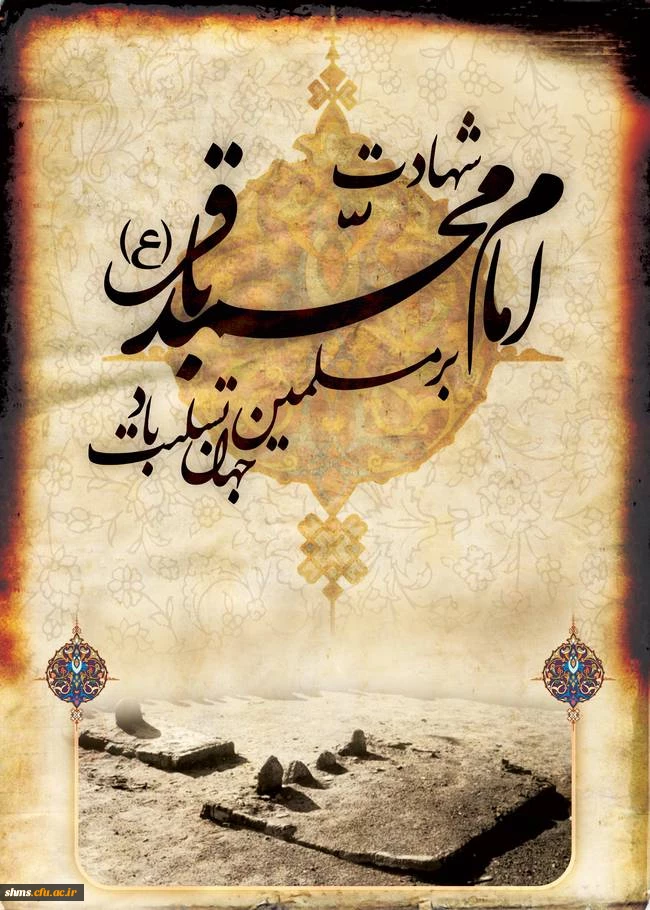 شهادت
امام محمّد باقر (ع)
بر مسلمین
جهان تسلیت باد
shms.cfu.ac.ir